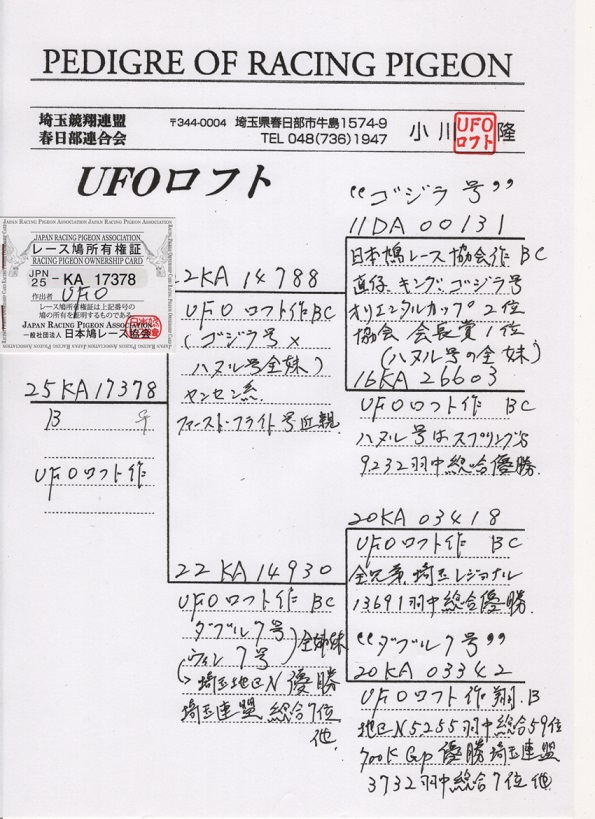 PEDIGRE OF RACING PIGEON
埼玉競翔連盟
春日部連合会
〒344-0004 埼玉県春日部市牛島1574-9
TEL 048(736)1947
小川 隆
UFO
ロフト
UFOロフト
JAPAN RACING PIGEON ASSOCIATION JAPAN RACING PIGEON ASSOCIATION
JAPAN RACING PIGEON ASSOCIATION
レース鳩所有権証
RACING PIGEON OWNERSHIP CARD
JPN
25 - KA 17378
作出者 UFO
レース鳩所有権証は上記番号の
鳩の所有を証明するものである
JAPAN RACING PIGEON ASSOCIATION
一般社団法人 日本鳩レース協会
25KA17378
B ♀
UFOロフト作
2KA 14788
UFOロフト作BC
(ゴジラ号×
ハヌル号全妹)
ヤンセン系
ファースト・フライト号近親
22KA 14930
UFOロフト作 BC
ダブル7号
ウィン7号
全姉妹
↳埼玉地CN優勝
埼玉連盟 総合7位
他
“ゴジラ号”
11DA 00131
日本鳩レース協会作 BC
直仔、キング、ゴジラ号
オリエンタルカップ2位
協会 会長賞1位
(ハヌル号の全妹)
16KA 26603
UFOロフト作 BC
ハヌル号はスプリング
9232羽中総合優勝
20KA 03418
UFOロフト作 BC
全兄弟埼玉レジョナル
13691羽中総合優勝
“ダブル7号”
20KA 03342
UFOロフト作翔、B
地CN5255羽中総合59位
700K Gp 優勝埼玉連盟
3732羽中総合7位他